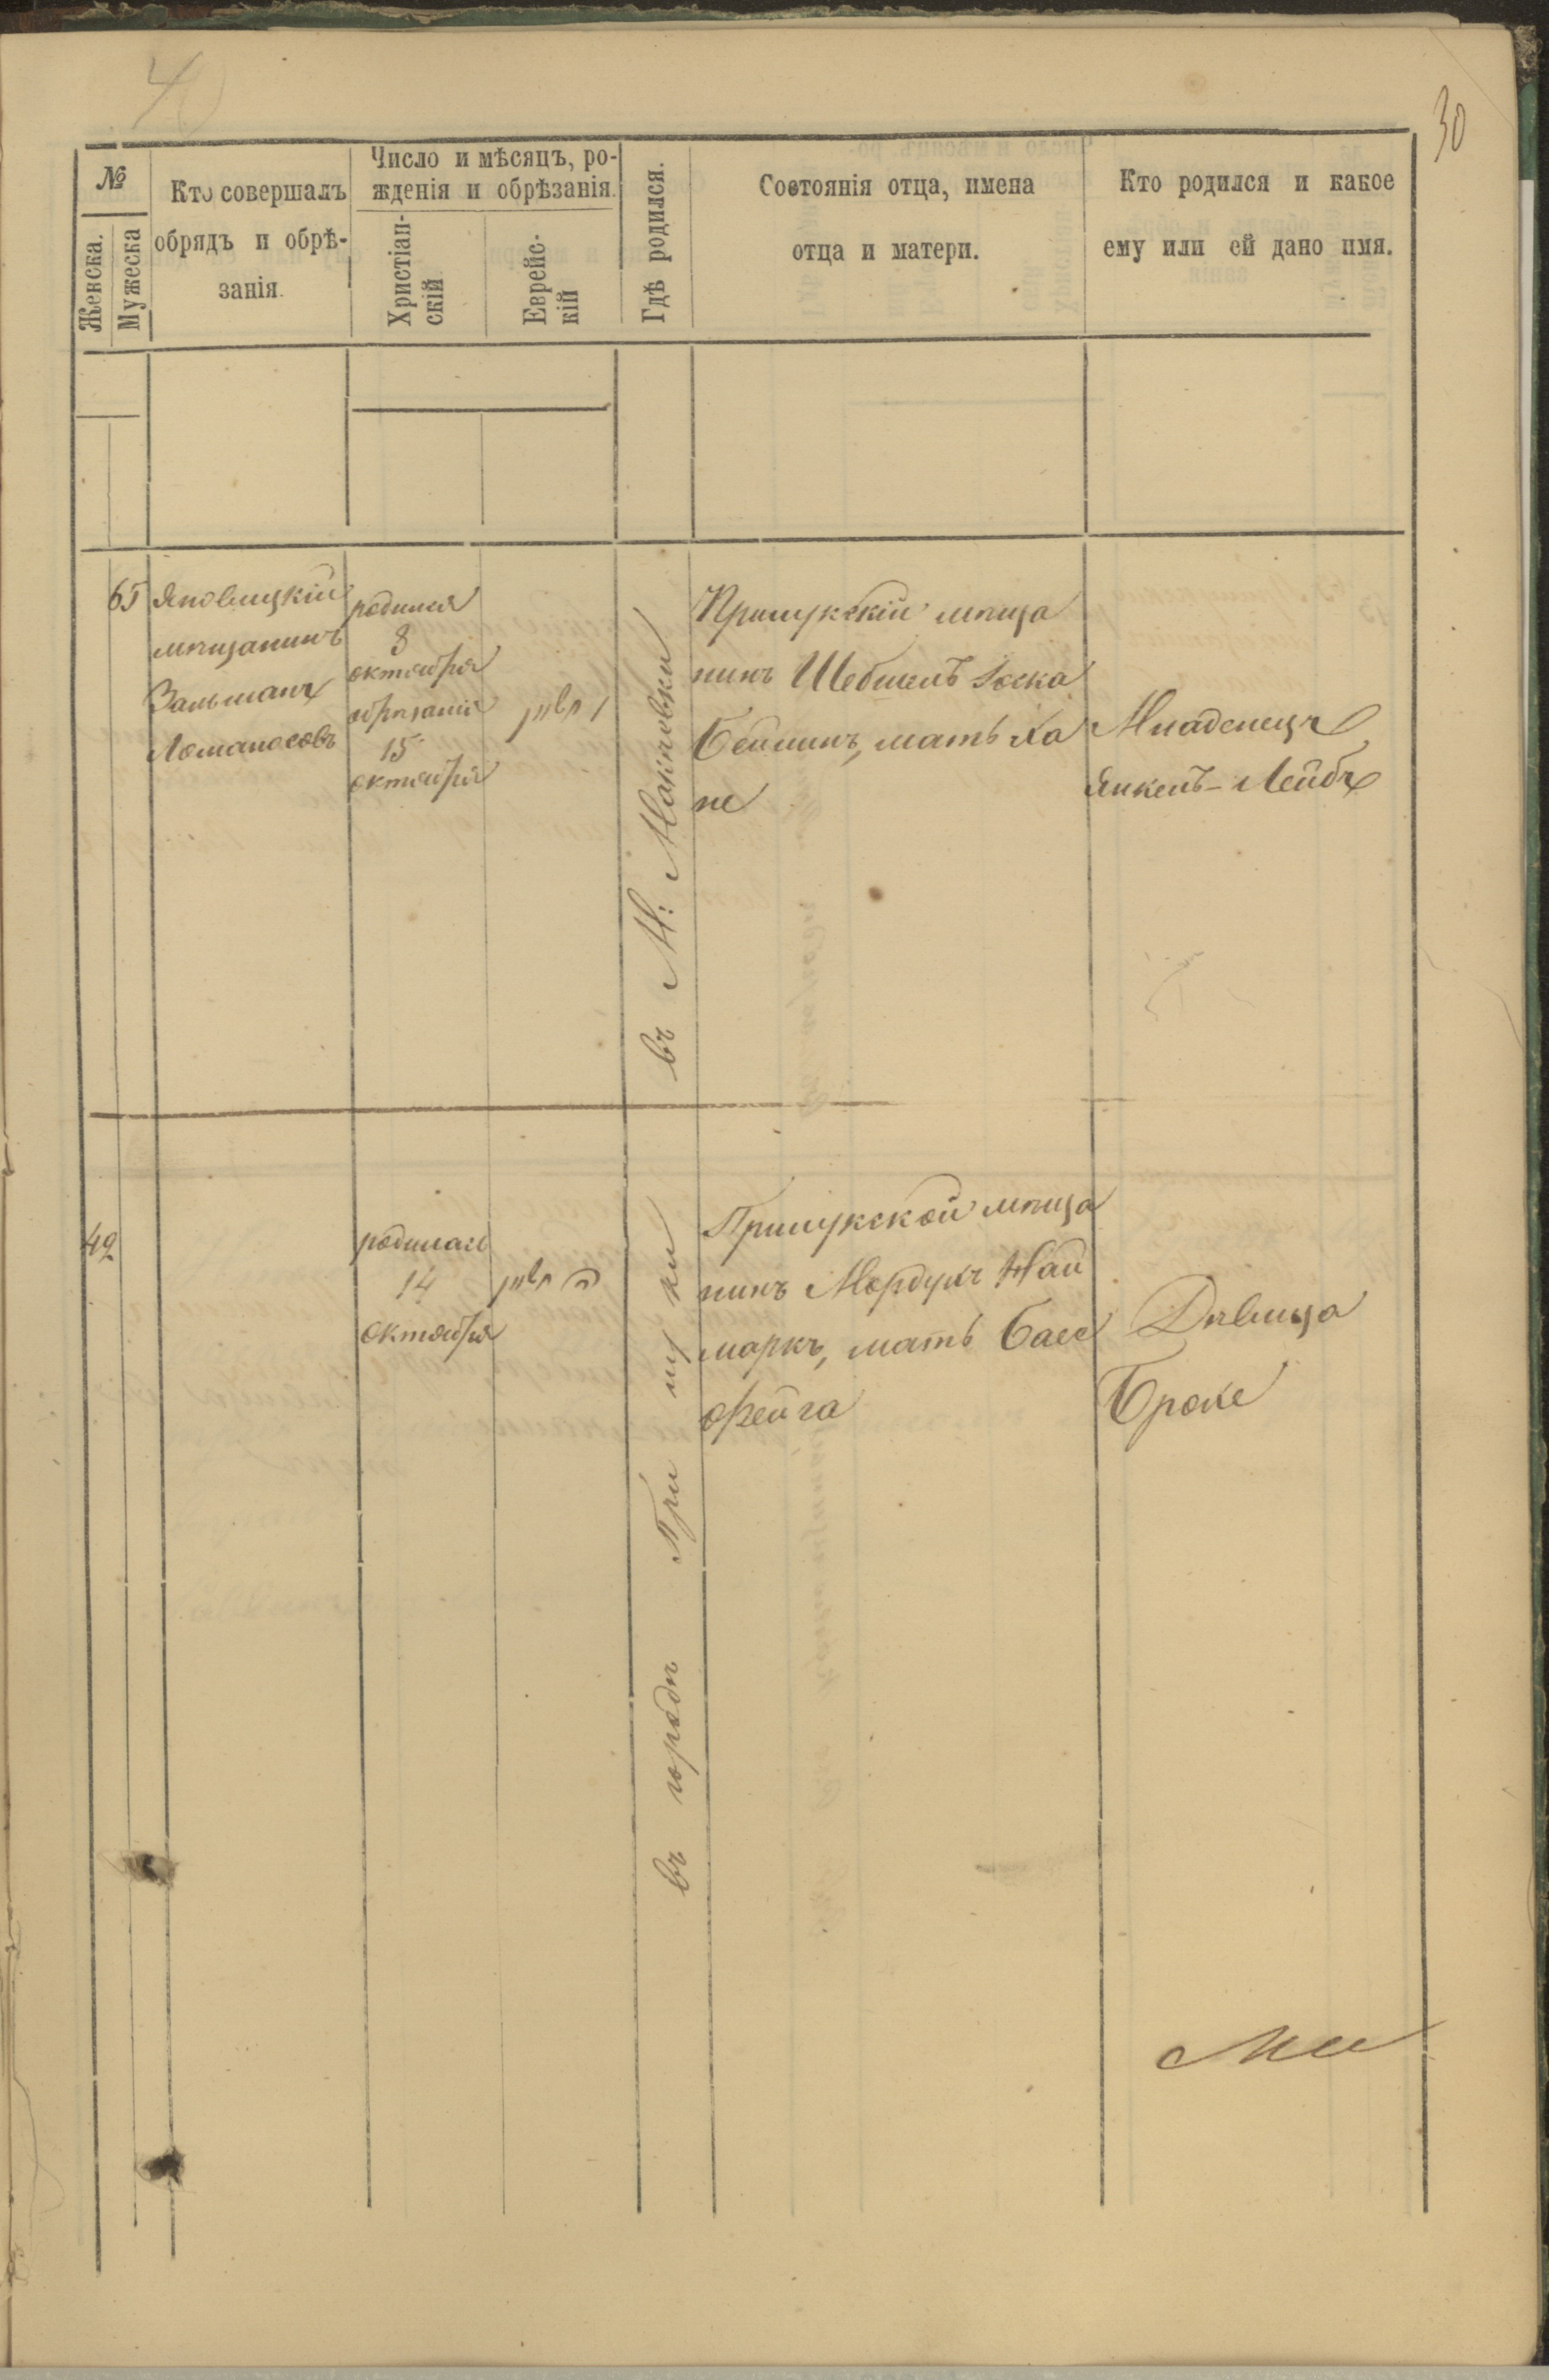 30
№
Женска.
Мужеска
Кто совершалъ
обрядъ и обрѣ-
занія.
Число и мѣсяцъ, ро-
жденія и обрѣзанія.
Христіан-
скій
Еврейс-
кій
Гдѣ родился.
Состоянія отца, имена
отца и матери.
Кто родился и какое
ему или ей дано имя.
65
мѣщанинъ
Зальманъ
Ломаносовъ
родился
8
октября
обрѣзанія
15
октября
въ М:
Прилукскій мѣща
нинъ
мать Ха
не
Младенецъ
Янкель-Лейбъ
42
родилась
14
октября
въ городѣ При лу ки
Прилукской мѣща
нинъ Мордухъ Най
маркъ, мать Бася
Фейга
Дѣвица
Брохе